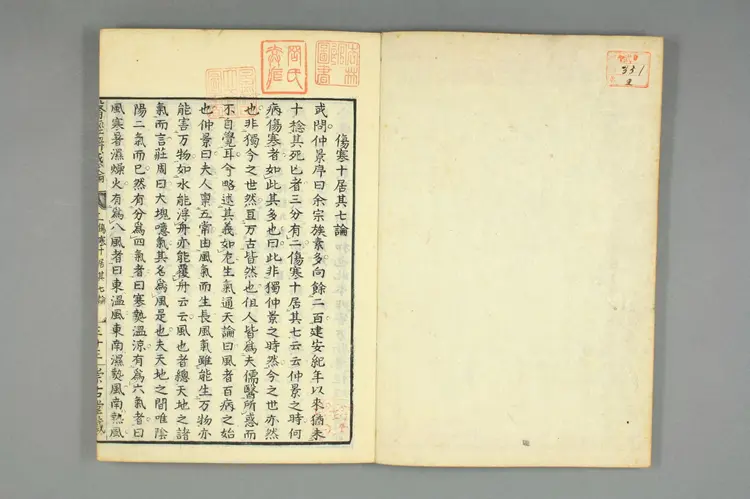 傷寒十居其七論
或問仲景序曰余宗族素多向餘二百建安紀年以來猶未
十稔其死亡者三分有二傷寒十居其七云云仲景之時何
病傷寒者如此其多也曰此非獨仲景之時然今之世亦然
也非獨今之世然亘万古皆然也但人皆為夫儒醫所惑而
不自覺耳今略述其義如左生氣通天論曰風者百病之始
也仲景曰夫人稟五常由風氣而生長風氣雖能生万物亦
能害万物如水能浮舟亦能覆舟云云風也者總天地之諸
氣而言莊周曰大塊噫氣其名為風是也夫天地之間唯陰
陽二氣而已然有分為四氣者曰寒熱溫涼有為六氣者曰
風寒暑濕燥火有為八風者曰東溫風東南濕熱風南熱風
傷寒十居其七論